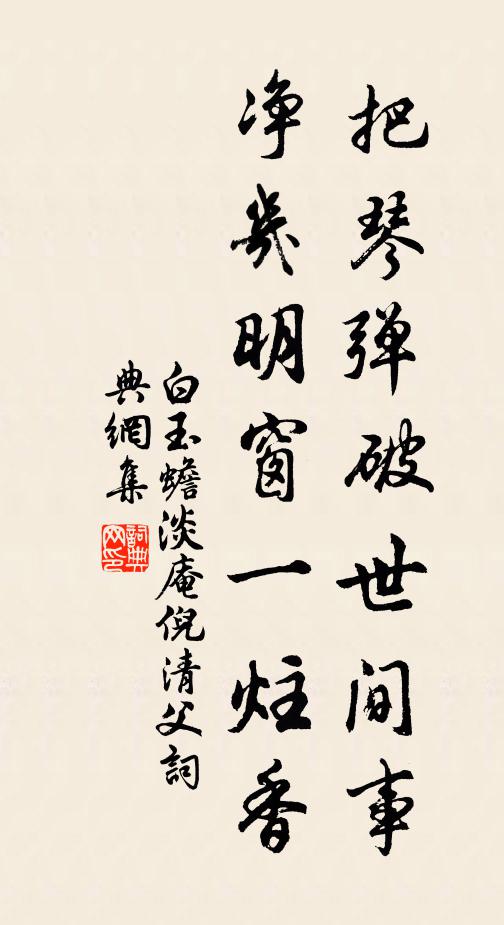 把琴弹破世间事
净几明窗一炷香
白玉蟾淡庵倪清父詞
典網集
詞典网印